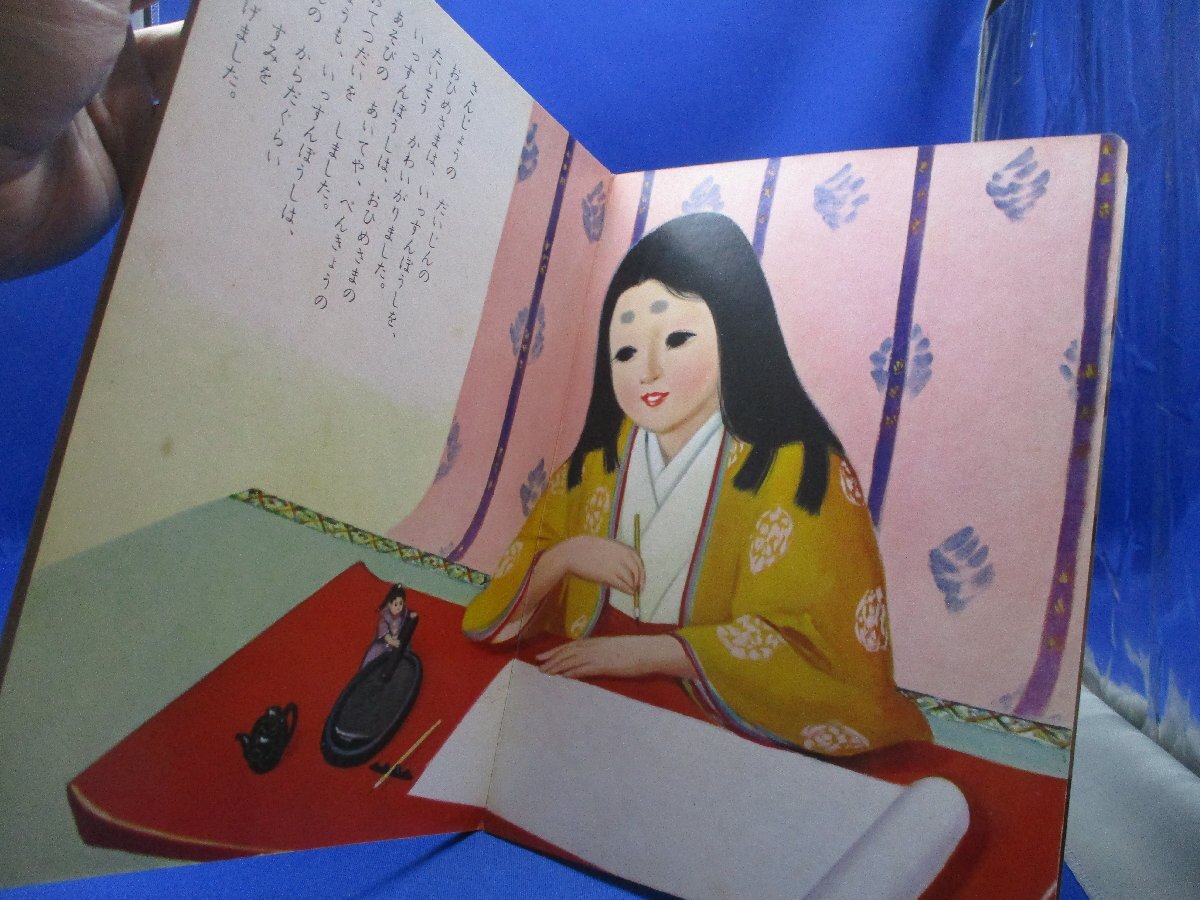 さんじょうの だいじんの
おひめさまは、いっすんぼうしを、
たいそう かわいがりました。
いっすんぼうしは、おひめさまの
あそびの あいてや、べんきょうの
てつだいを しました。
うも、いっすんぼうしは、
の からだぐらい
すみを
げました。